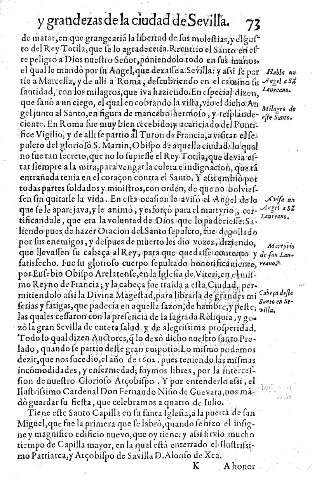 y grandezas de la ciudad de Sevilla. 73
de matar, en que grangearia la libertad de sus molestias, y el gus-
to del Rey Totila, que se lo agradeceria. Recurrio el Santo en es-
te peligro a Dios nuestro Señor, poniendolo todo en sus manos,
el qual le mandó por su Angel, que dexasse a Sevilla: y assi se par
tio a Marcella, y de alli a Roma, descubriendo en el camino su
santidad, con los milagros, que iva haziendo. En especial dizen,
que sanó a un ciego, el qual en cobrando la vista, vio el dicho An-
gel junto al Santo, en figura de mancebo hermoso, y resplande-
ciente. En Roma fue muy bien recebido, y acariciado del Ponti-
fice Vigilio, y de alli se partio al Turon de Francia, a visitar el se-
pulcro del glorioso S. Martin, Obispo de aquella ciudad: lo qual
no fue tan secreto, que no lo supiesse el Rey Totila, que devia es-
tar siempre a la mira, para vengar la colera e indignacion, que tā
entrañada tenia en el coraçon contra el Santo. Y assi embió por
todas partes soldados y ministros, con orden, de que no bolvies-
sen sin quitarle la vida. En esta ocasion lo avisó el Angel de la
que se le aparejava, y le animó, y esforçó para el martyrio, cer-
tificandole, que era la voluntad de Dios que lo padeciesse: Sa-
liendo pues de hazer Oracion del Santo sepulcro, fue degollado
por sus enemigos, y despues de muerto les dio vozes, diziendo,
que llevassen su cabeça al Rey, para que quedasse contento y
satisfecho. Fue su glorioso cuerpo sepultado honorificamente,
por Eusebio Obispo Arelatense, en la Iglesia de Viteri, en el mis-
mo Reyno de Francia, y la cabeça fue traida a esta Ciudad, per-
mitiendolo assi la Divina Magestad, para librarla de grandes mi
serias y fatigas, que padecia en aquella sazon, de hambre, y peste;
las quales cessaron con la presencia de la sagrada Reliquia, y go-
zó la gran Sevilla de entera salud, y de alegrissima prosperidad.
Todo lo qual dizen Auctores, q̃ lo dexó dicho nuestro santo Pre-
lado, quando se partio deste gran pueblo. Lo mismo podemos
dezir, que nos sucedio, el año de 1601. pues teniendo las mismas
incomodidades, y enfermedad; fuymos libres, por la interces-
sion de nuestro Glorioso Arçobispo. Y por entenderlo assi, el
Ilustrissimo Cardenal Don Fernando Niño de Guevara, nos mā-
dó guardar su fiesta, que celebramos a quatro de Iulio.
Tiene este Santo Capilla en su santa Iglesia, a la puerta de san
Miguel, que fue la primera que se labró, quando se hizo el insig-
ne y magnifico edificio nuevo, que oy tiene: y assi sirvio mucho
tiempo de Capilla mayor, en la qual está enterrado el Ilustrissi-
mo Patriarca, y Arçobispo de Sevilla D. Alonso de Xea.
K A honor
Hablē un
Angel a Sā
Laureano.
Milagro de
este Santo.
Avisa un
Angel a Sā
Laureano.
Martyrio
de san Lau-
reano.
Cabeça deste
Santo en Se-
villa.